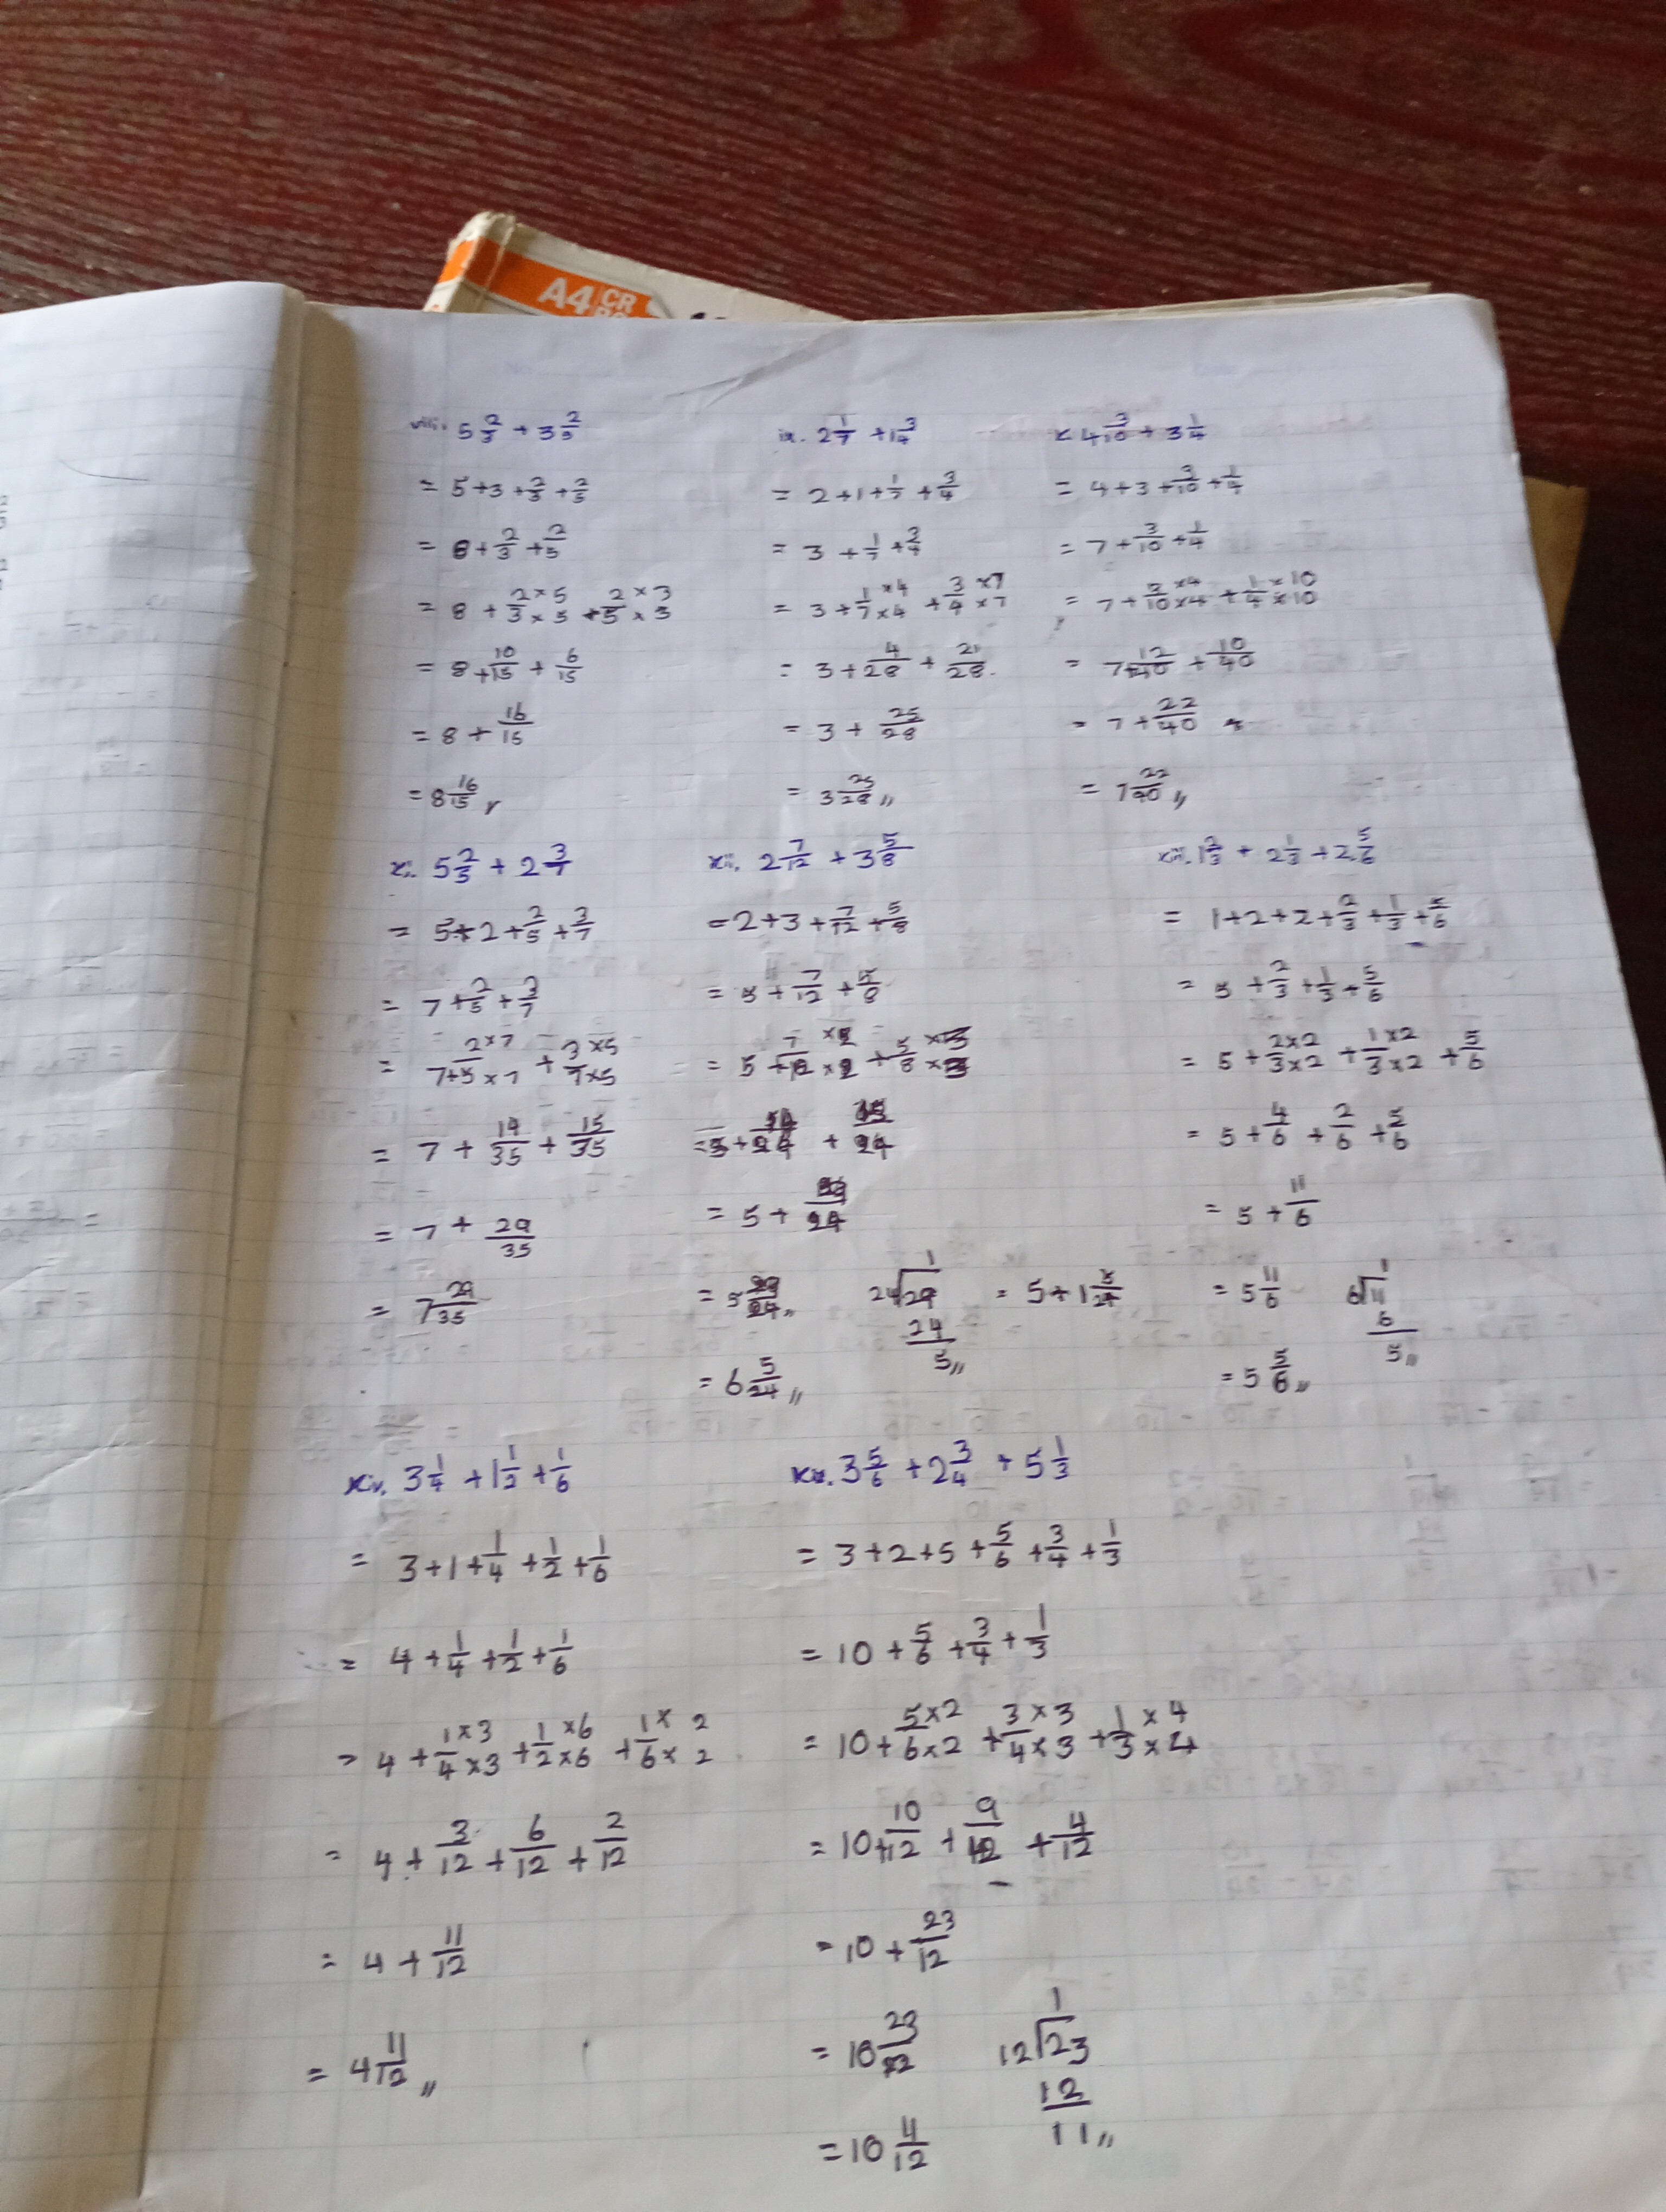 A4 CR
viii. 5 2/3 + 3 2/5
= 5+3+2/3+2/5
= 8+2/3+2/5
= 8 + 2×5/3×5 + 2×3/5×3
= 8+10/15 + 6/15
= 8 + 16/15
= 8 16/15
ix. 2 1/7 + 1 3/4
= 2+1+1/7+3/4
= 3 + 1/7 + 3/4
= 3 + 1×4/7×4 + 3×7/4×7
= 3 + 4/28 + 21/28
= 3 + 25/28
= 3 25/28 ,,
x. 4 3/10 + 3 1/4
= 4+3+3/10+1/4
= 7+3/10+1/4
= 7+3×4/10×4 + 1×10/4×10
= 7+12/40 + 10/40
= 7 + 22/40
= 7 22/40 ,,
xi. 5 2/5 + 2 3/7
= 5+2+2/5+3/7
= 7+2/5+3/7
= 7+2×7/5×7 + 3×5/7×5
= 7 + 14/35 + 15/35
= 7 + 29/35
= 7 29/35
xii. 2 7/12 + 3 5/8
= 2+3+7/12+5/8
= 5+7/12+5/8
= 5+7×2/12×2 + 5×3/8×3
= 5+14/24 + 15/24
= 5 + 29/24
= 5 29/24 ,, 24√29 1 = 5+1 5/24
24
5 ,,
= 6 5/24 ,,
xiii. 1 2/3 + 2 1/3 + 2 5/6
= 1+2+2+2/3+1/3+5/6
= 5+2/3+1/3+5/6
= 5+2×2/3×2 + 1×2/3×2 + 5/6
= 5+4/6+2/6+5/6
= 5+11/6
= 5 11/6 6√11 1
6
5 ,,
= 5 5/6 ,,
xiv. 3 1/4 + 1 1/2 + 1/6
= 3+1+1/4+1/2+1/6
= 4+1/4+1/2+1/6
= 4+1×3/4×3 + 1×6/2×6 + 1×2/6×2
= 4+3/12+6/12+2/12
= 4+11/12
= 4 11/12 ,,
xv. 3 5/6 + 2 3/4 + 5 1/3
= 3+2+5+5/6+3/4+1/3
= 10+5/6+3/4+1/3
= 10+5×2/6×2 + 3×3/4×3 + 1×4/3×4
= 10+10/12 + 9/12 + 4/12
= 10+23/12
= 10 23/12 12√23 1
12
11 ,,
= 10 11/12